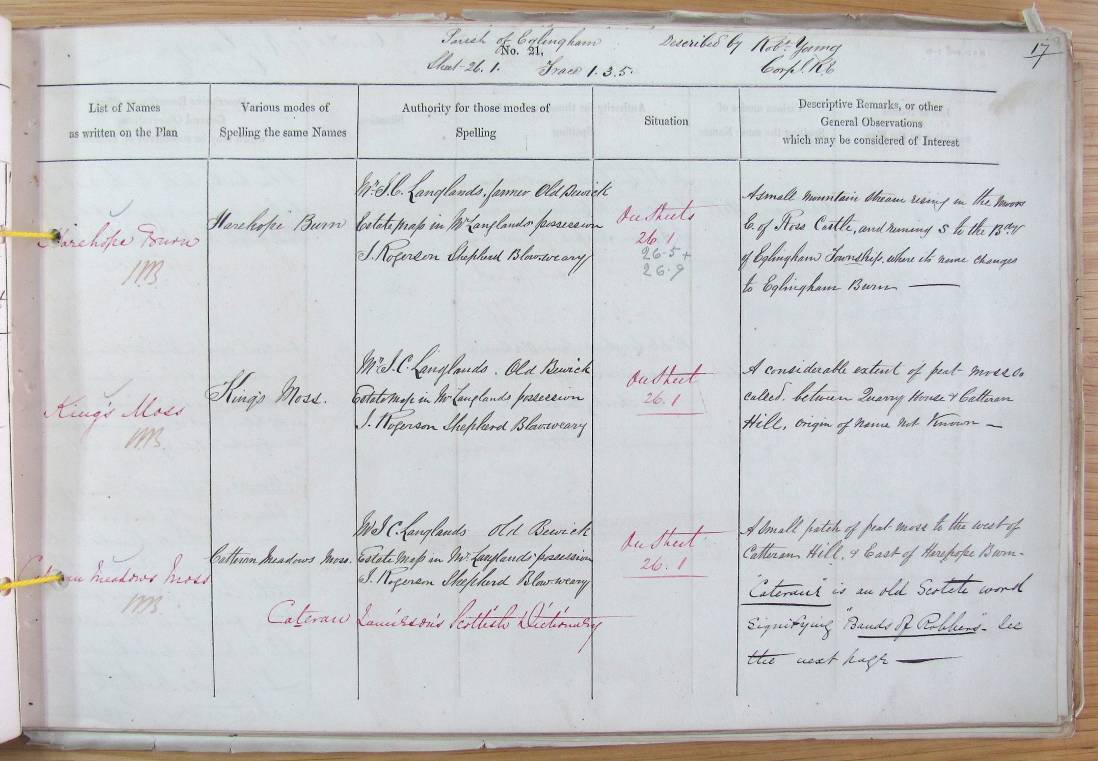 Parish of Eglingham
No. 21,
Described by Robt. Young
Corpl. R.E.
17
Sheet 26.1. Trace 1.3.5.
List of Names
as written on the Plan
Various modes of
Spelling the same Names
Authority for those modes of
Spelling
Situation
Descriptive Remarks, or other
General Observations
which may be considered of Interest
Harehope Burn
Harehope Burn
Mr. J.C. Langlands, farmer Old Bewick
Estate Map in Mr Langlands possession
J. Rogerson Shepherd Blawweary
On Sheets
26.1
26.5 +
26.9
A small mountain stream rising in the moors
E. of Ross Castle, and running S to the Bdy
of Eglingham Township, where its name changes
to Eglingham Burn
King's Moss
King's Moss.
Mr. J.C. Langlands. Old Bewick
Estate Map in Mr Langlands possession
J. Rogerson Shepherd Blawweary
On Sheet
26.1
A considerable extent of peat moss so
called. between Quarry House & Catteran
Hill, origin of name not Known
Meadows Moss
Catteran Meadows Moss.
Mr J.C. Langlands Old Bewick
Estate Map in Mr Langlands' possession
J. Rogerson Shepherd Blawweary
Cateran Jamieson's Scottish Dictionary
On Sheet
26.1
A small patch of peat moss to the west of
Catteran Hill, & East of Harehope Burn
"Caterans" is an old word
signifying "Bands of Robbers" - See
the next page